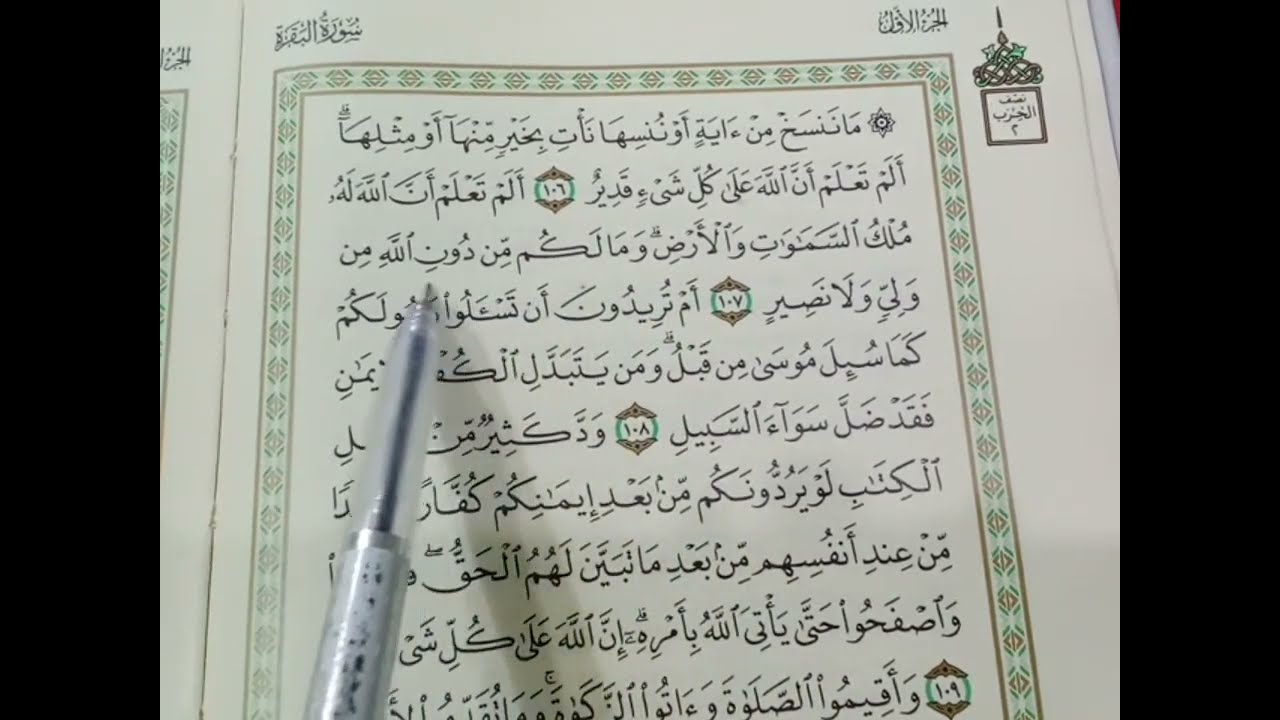 الجزء الأول
سورة البقرة
الجزء ا
نصف
الحزب
٢
۞ مَا نَنسَخْ مِنْ ءَايَةٍ أَوْ نُنسِهَا نَأْتِ بِخَيْرٍ مِّنْهَآ أَوْ مِثْلِهَآ ۗ
أَلَمْ تَعْلَمْ أَنَّ ٱللَّهَ عَلَىٰ كُلِّ شَىْءٍ قَدِيرٌ ١٠٦ أَلَمْ تَعْلَمْ أَنَّ ٱللَّهَ لَهُۥ
مُلْكُ ٱلسَّمَٰوَٰتِ وَٱلْأَرْضِ ۗ وَمَا لَكُم مِّن دُونِ ٱللَّهِ مِن
وَلِىٍّ وَلَا نَصِيرٍ ١٠٧ أَمْ تُرِيدُونَ أَن تَسْـَٔلُوا۟ سُولَكُمْ
كَمَا سُئِلَ مُوسَىٰ مِن قَبْلُ ۗ وَمَن يَتَبَدَّلِ ٱلْكُفْ يمَٰنِ
فَقَدْ ضَلَّ سَوَآءَ ٱلسَّبِيلِ ١٠٨ وَدَّ كَثِيرٌ مِّنْ لِ
ٱلْكِتَٰبِ لَوْ يَرُدُّونَكُم مِّنۢ بَعْدِ إِيمَٰنِكُمْ كُفَّارً دًا
مِّنْ عِندِ أَنفُسِهِم مِّنۢ بَعْدِ مَا تَبَيَّنَ لَهُمُ ٱلْحَقُّ ۖ
وَٱصْفَحُوا۟ حَتَّىٰ يَأْتِىَ ٱللَّهُ بِأَمْرِهِۦٓ ۗ إِنَّ ٱللَّهَ عَلَىٰ كُلِّ شَىْ
١٠٩ وَأَقِيمُوا۟ ٱلصَّلَوٰةَ وَءَاتُوا۟ ٱلزَّكَوٰةَ ۚ وَمَا تُقَدِّمُ